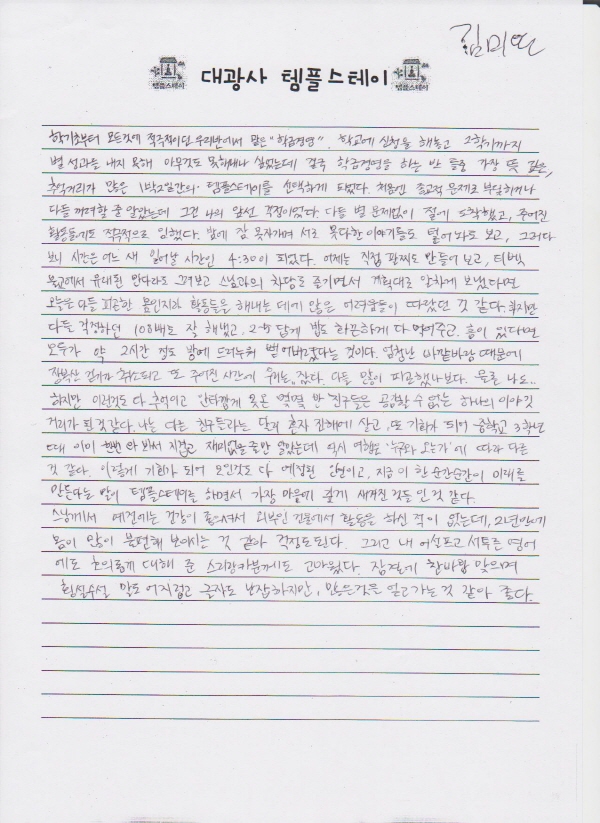 김미연
템플스테이 대광사 템플스테이 템플스테이
학기초부터 모든것에 적극적이던 우리반에서 맡은 "학급경영". 학교에 신청을 해놓고 2학기까지
별 성과를 내지 못해 아무것도 못해내나 싶었는데 결국 학급경영을 하는 반 들중 가장 뜻 깊은,
추억거리가 많은 1박2일간의 템플스테이를 선택하게 되었다. 처음엔 종교적 문제로 부딪히거나
다들 꺼려할 줄 알았는데 그건 나의 앞선 걱정이었다. 다들 별 문제없이 절에 도착했고, 주어진
활동들에도 적극적으로 임했다. 밤에 잠 못자가며 서로 못다한 이야기들도 털어놔도 보고, 그러다
보니 시간은 어느 새 일어날 시간인 4:30이 되었다. 어제는 직접 팔찌도 만들어 보고, 티벳
불교에서 유래된 만다라도 그려보고 스님과의 차담도 즐기면서 계획대로 알차게 보냈다면
오늘은 다들 피곤한 몸인지라 활동들을 해내는 데에 많은 어려움들이 따랐던 것 같다. 하지만
다들 걱정하던 108배도 잘 해냈고, 2-8 답게 밥도 화끈하게 다 먹어주고. 흠이 있다면
모두가 약 2시간 정도 방에 드러누워 뻗어버렸다는 것이다. 엄청난 바깥바람 때문에
장복산 걷기가 취소되고 또 주어진 시간에 우리는 잤다. 다들 많이 피곤했나보다. 물론 나도..
하지만 이런것도 다 추억이고 안타깝게 못온 몇몇 반 친구들은 공감할 수 없는 하나의 이야깃
거리가 된 것 같다. 나는 다른 친구들과는 달리 혼자 진해에 살고, 또 기회가 되어 중학교 3학년
때 이미 한번 와 봐서 지겹고 재미없을줄만 알았는데 역시 여행도 '누구와 오는가'에 따라 다른
것 같다. 이렇게 기회가 되어 모인것도 다 예정된 인연이고, 지금 이 한 순간순간이 미래를
만든다는 말이 템플스테이를 하면서 가장 마음에 깊게 새겨진 것들 인 것 같다.
스님께서 예전에는 건강이 좋으셔서 외부인 건물에서 활동을 하신 적이 없는데, 2년만에
몸이 많이 불편해 보이시는 것 같아 걱정도된다. 그리고 내 어설프고 서투른 영어
에도 호의롭게 대해 준 스리랑카분께도 고마웠다. 잠결에 찬바람 맞으며
횡설수설 말도 어지럽고 글자도 난잡하지만, 많은것을 얻고가는것 같아 좋다.